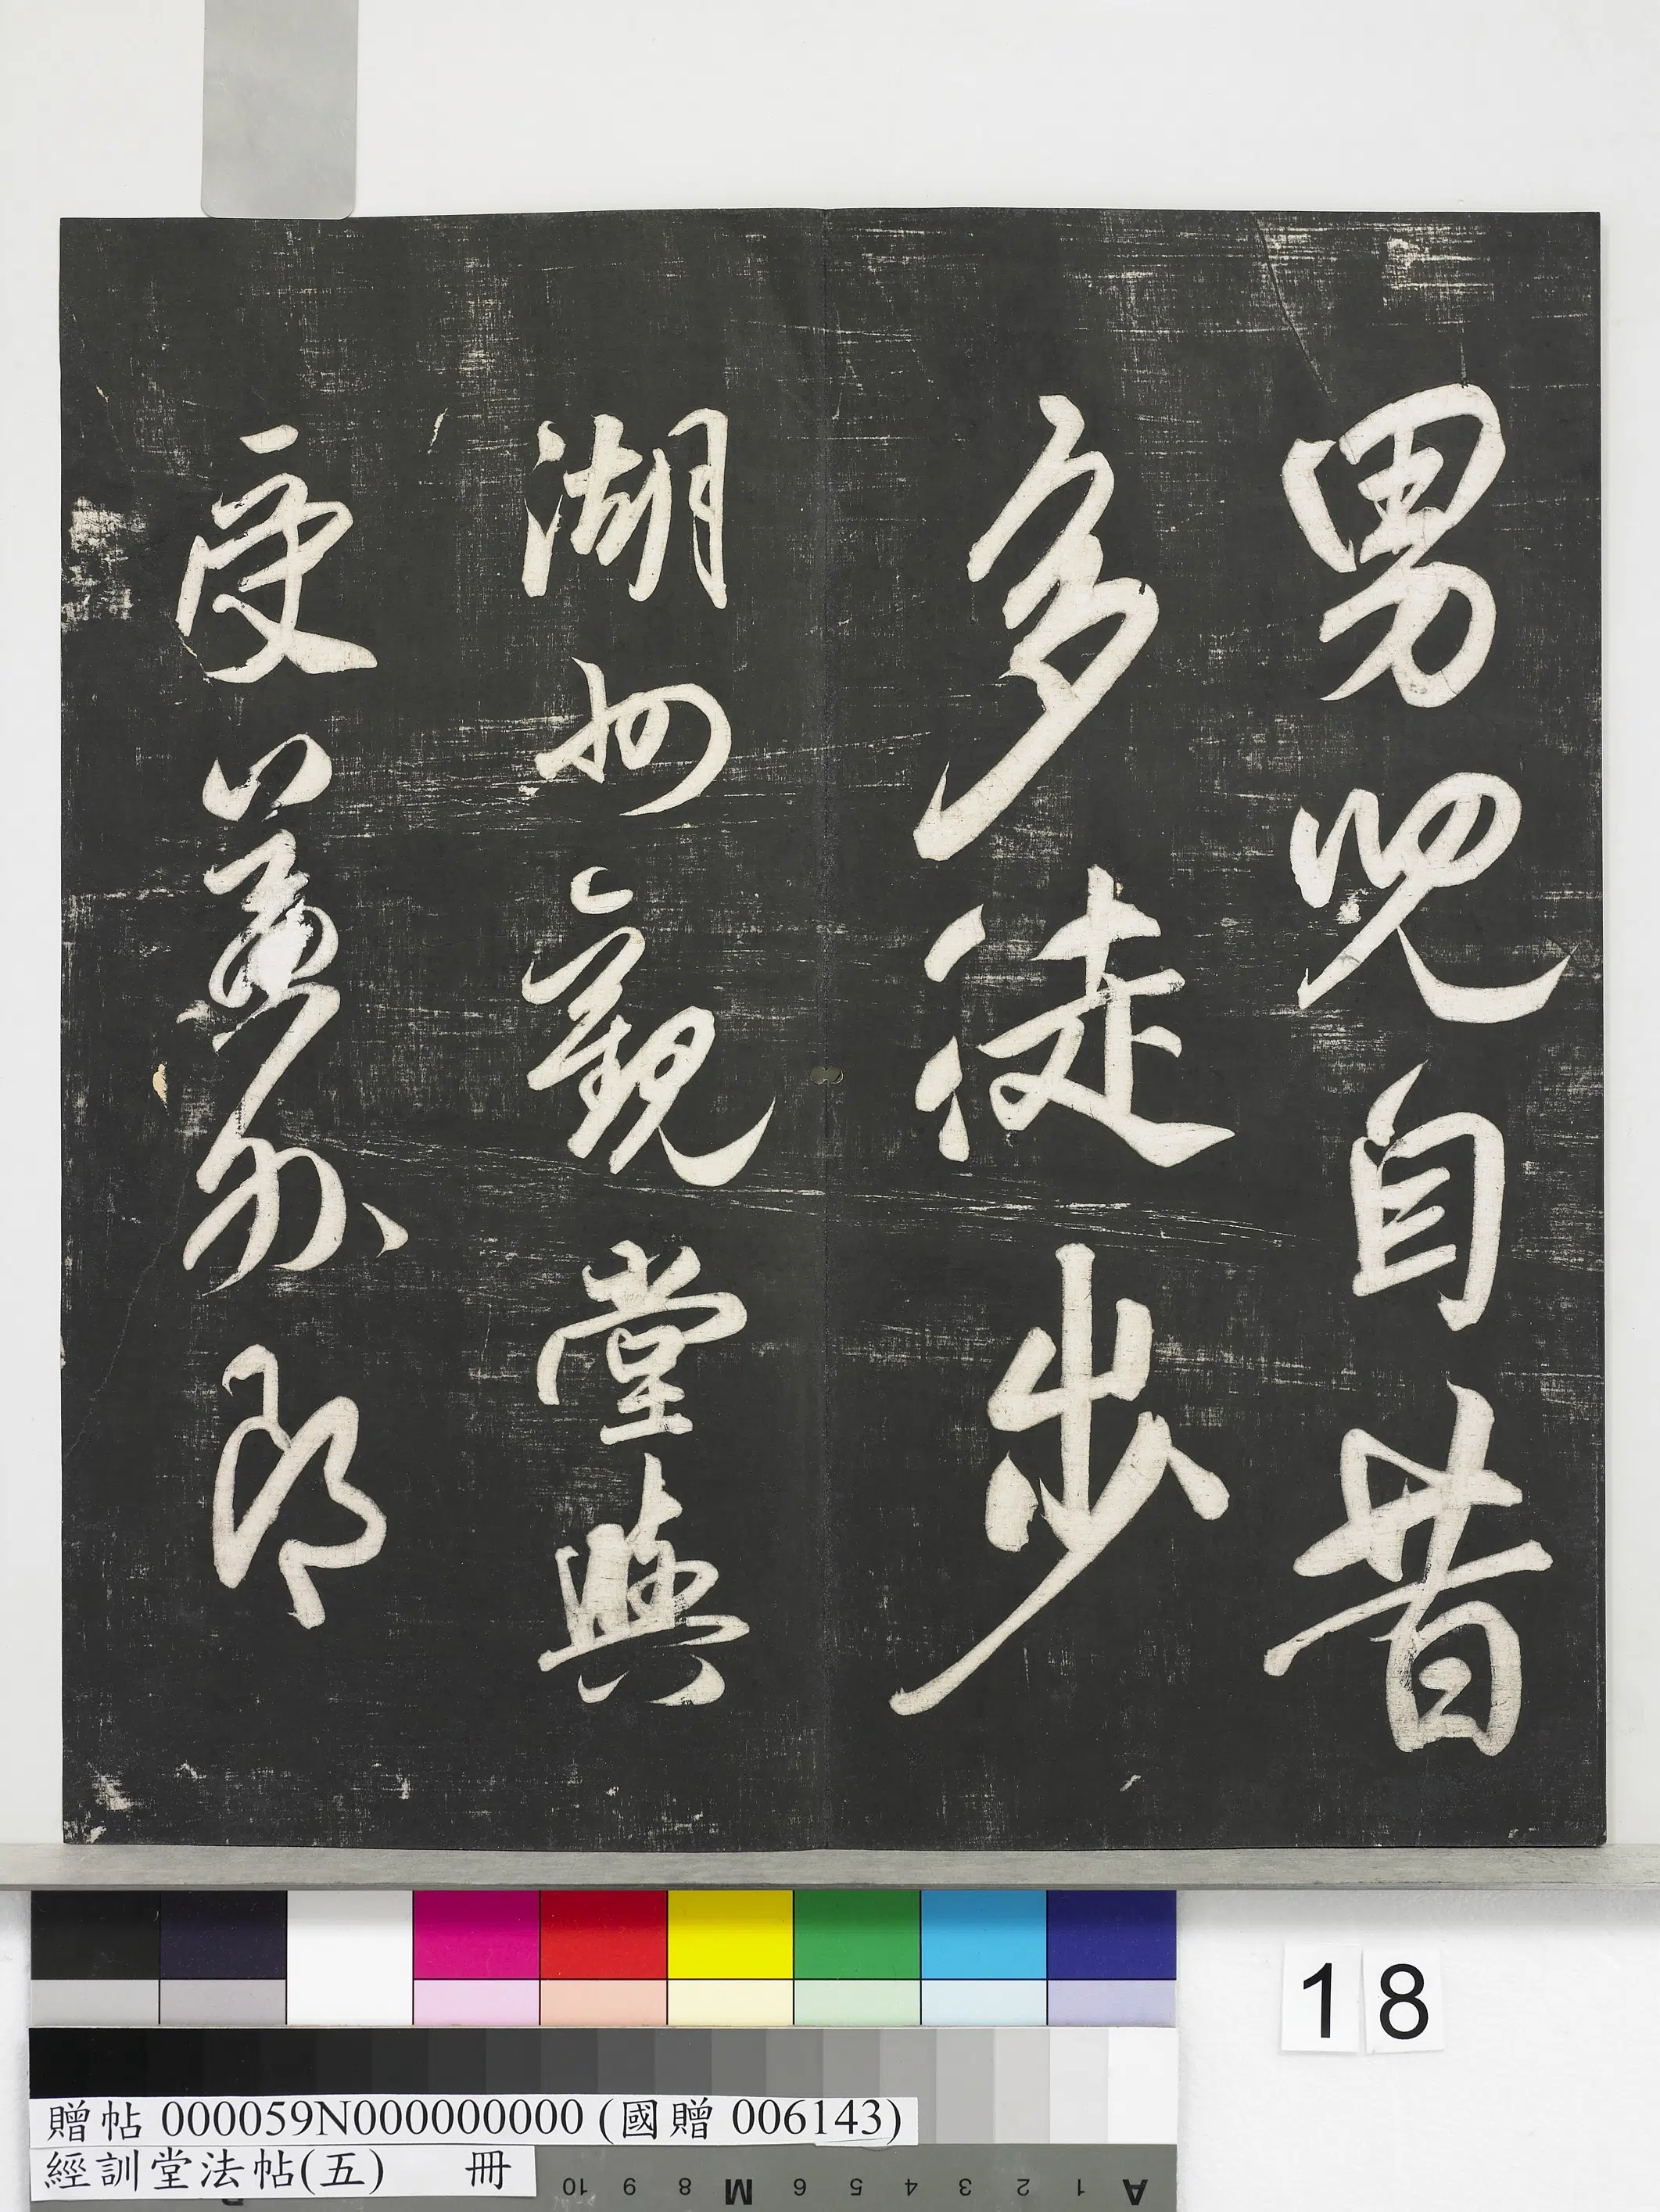 男兒自昔
多徒步
湖州觀堂與
受益外郎
18
贈帖 000059N000000000 (國贈 006143)
經訓堂法帖(五) 冊
A 1 2 3 4 5 6 M 8 9 10